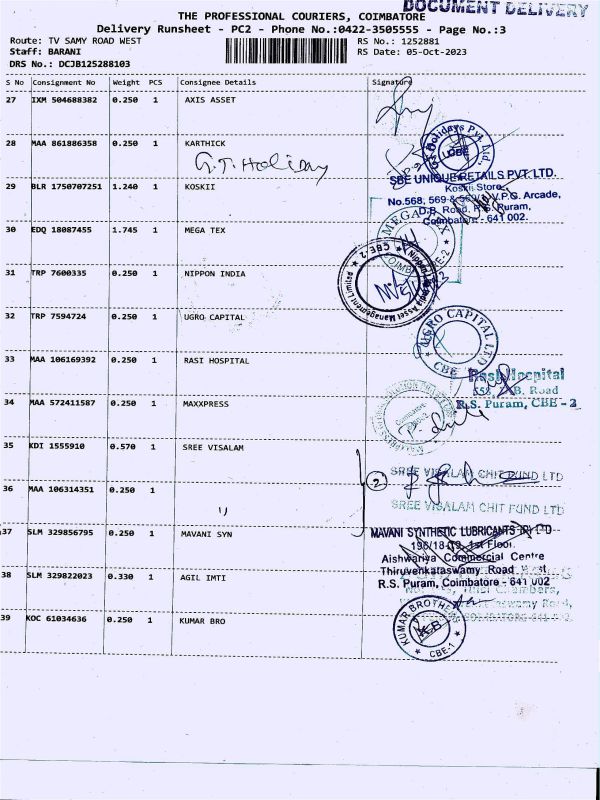 DOCUMENT DELIVERY
THE PROFESSIONAL COURIERS, COIMBATORE
Delivery Runsheet - PC2 - Phone No.:0422-3505555 - Page No.:3
Route: TV SAMY ROAD WEST RS No.: 1252881
Staff: BARANI RS Date: 05-Oct-2023
DRS No.: DCJB125288103
S No Consignment No Weight PCS Consignee Details Signature
27 IXM 504688382 0.250 1 AXIS ASSET
28 MAA 861886358 0.250 1 KARTHICK
G.T. Holiday
Holidays Pvt. Ltd.
29 BLR 1750707251 1.240 1 KOSKII
SBE UNIQUE RETAILS PVT. LTD.
Koskii Store
No.568, 569 & V.P.G. Arcade,
D.B. Road, R.S. Puram,
Coimbatore - 641 002.
30 EDQ 18087455 1.745 1 MEGA TEX
MEGA TEX
CBE-2
31 TRP 7600335 0.250 1 NIPPON INDIA
Nippon India Asset Management Limited
CBE-2
32 TRP 7594724 0.250 1 UGRO CAPITAL
UGRO CAPITAL LTD
CBE
33 MAA 106169392 0.250 1 RASI HOSPITAL
Rasi Hospital
D.B. Road
R.S. Puram, CBE - 2
34 MAA 572411587 0.250 1 MAXXPRESS
35 KDI 1555910 0.570 1 SREE VISALAM
2 SREE VISALAM CHIT FUND LTD
36 MAA 106314351 0.250 1
SREE VISALAM CHIT FUND LTD
37 SLM 329856795 0.250 1 MAVANI SYN
MAVANI SYNTHETIC LUBRICANTS (P) LTD
196/18-19, 1st Floor.
Aishwariya Commercial Centre
Thiruvenkataswamy Road West
R.S. Puram, Coimbatore - 641 002
38 SLM 329822023 0.330 1 AGIL IMTI
Chambers,
swamy Road,
39 KOC 61034636 0.250 1 KUMAR BRO
KUMAR BROTHERS
KB
CBE-1